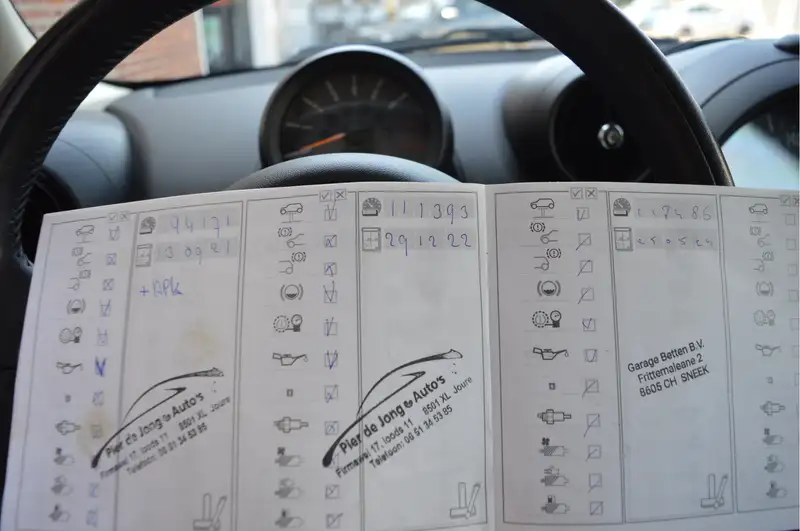 94171
130921
+APK
Pier de Jong & Auto's
Firmawei 17, loods 11 8501 XL Joure
Telefoon: 06 51 34 53 85
111393
291222
Pier de Jong & Auto's
Firmawei 17, loods 11 8501 XL Joure
Telefoon: 06 51 34 53 85
Garage Betten B.V.
8605 CH SNEEK